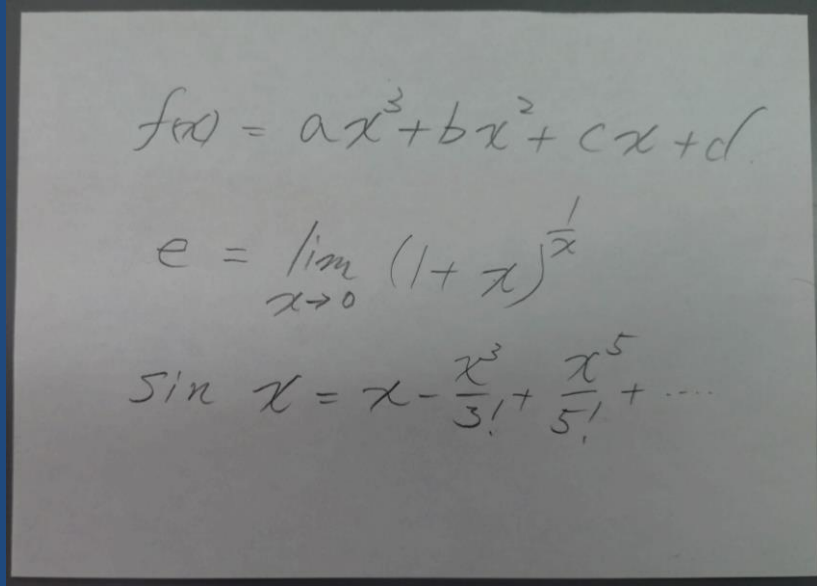 f(x) = ax³+bx²+cx+d
e = lim x→0 (1+x)^(1/x)
sin x = x - x³/3! + x⁵/5! + ....